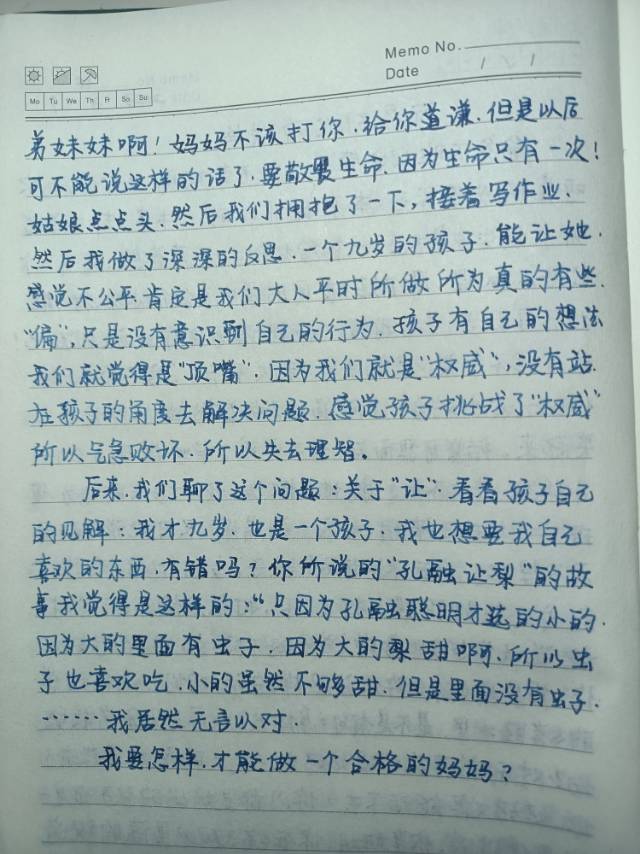 Memo No.
Date / /
Mo Tu We Th Fr Sa Su
弟妹妹啊！妈妈不该打你，给你道谦，但是以后
可不能说这样的话了，要敬畏生命，因为生命只有一次！
姑娘点点头，然后我们拥抱了一下，接着写作业，
然后我做了深深的反思，一个九岁的孩子，能让她，
感觉不公平，肯定是我们大人平时所做所为真的有些，
“偏”，只是没有意识到自己的行为，孩子有自己的想法
我们就觉得是“顶嘴”，因为我们就是“权威”，没有站，
在孩子的角度去解决问题，感觉孩子挑战了“权威”
所以气急败坏，所以失去理智。
后来，我们聊了这个问题：关于“让”，看看孩子自己
的见解：我才九岁，也是一个孩子，我也想要我自己
喜欢的东西，有错吗？你所说的“孔融让梨”的故
事我觉得是这样的：“只因为孔融聪明才选的小的，
因为大的里面有虫子，因为大的梨甜啊，所以虫
子也喜欢吃，小的虽然不够甜，但是里面没有虫子，
……我居然无言以对，
我要怎样，才能做一个合格的妈妈？